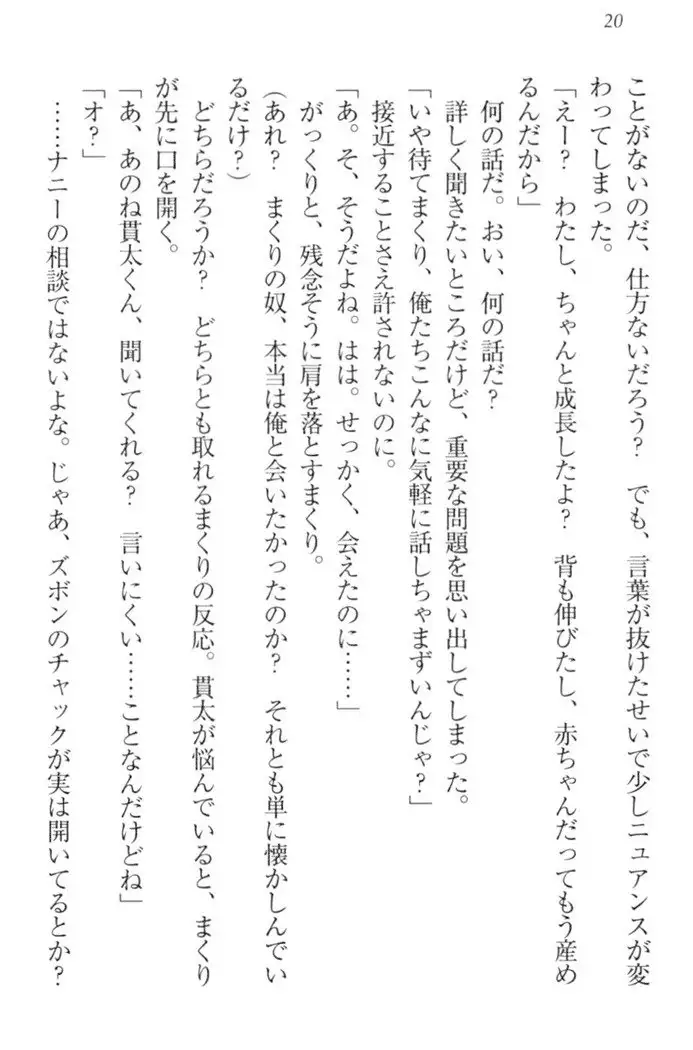 20
ことがないのだ、仕方ないだろう？　でも、言葉が抜けたせいで少しニュアンスが変
わってしまった。
「えー？　わたし、ちゃんと成長したよ？　背も伸びたし、赤ちゃんだってもう産め
るんだから」
何の話だ。おい、何の話だ？
詳しく聞きたいところだけど、重要な問題を思い出してしまった。
「いや待てまくり、俺たちこんなに気軽に話しちゃまずいんじゃ？」
接近することさえ許されないのに。
「あ。そ、そうだよね。はは。せっかく、会えたのに……」
がっくりと、残念そうに肩を落とすまくり。
（あれ？　まくりの奴、本当は俺と会いたかったのか？　それとも単に懐かしんでい
るだけ？）
どちらだろうか？　どちらとも取れるまくりの反応。貫太が悩んでいると、まくり
が先に口を開く。
「あ、あのね貫太くん、聞いてくれる？　言いにくい……ことなんだけどね」
「オ？」
……ナニーの相談ではないよな。じゃあ、ズボンのチャックが実は開いてるとか？